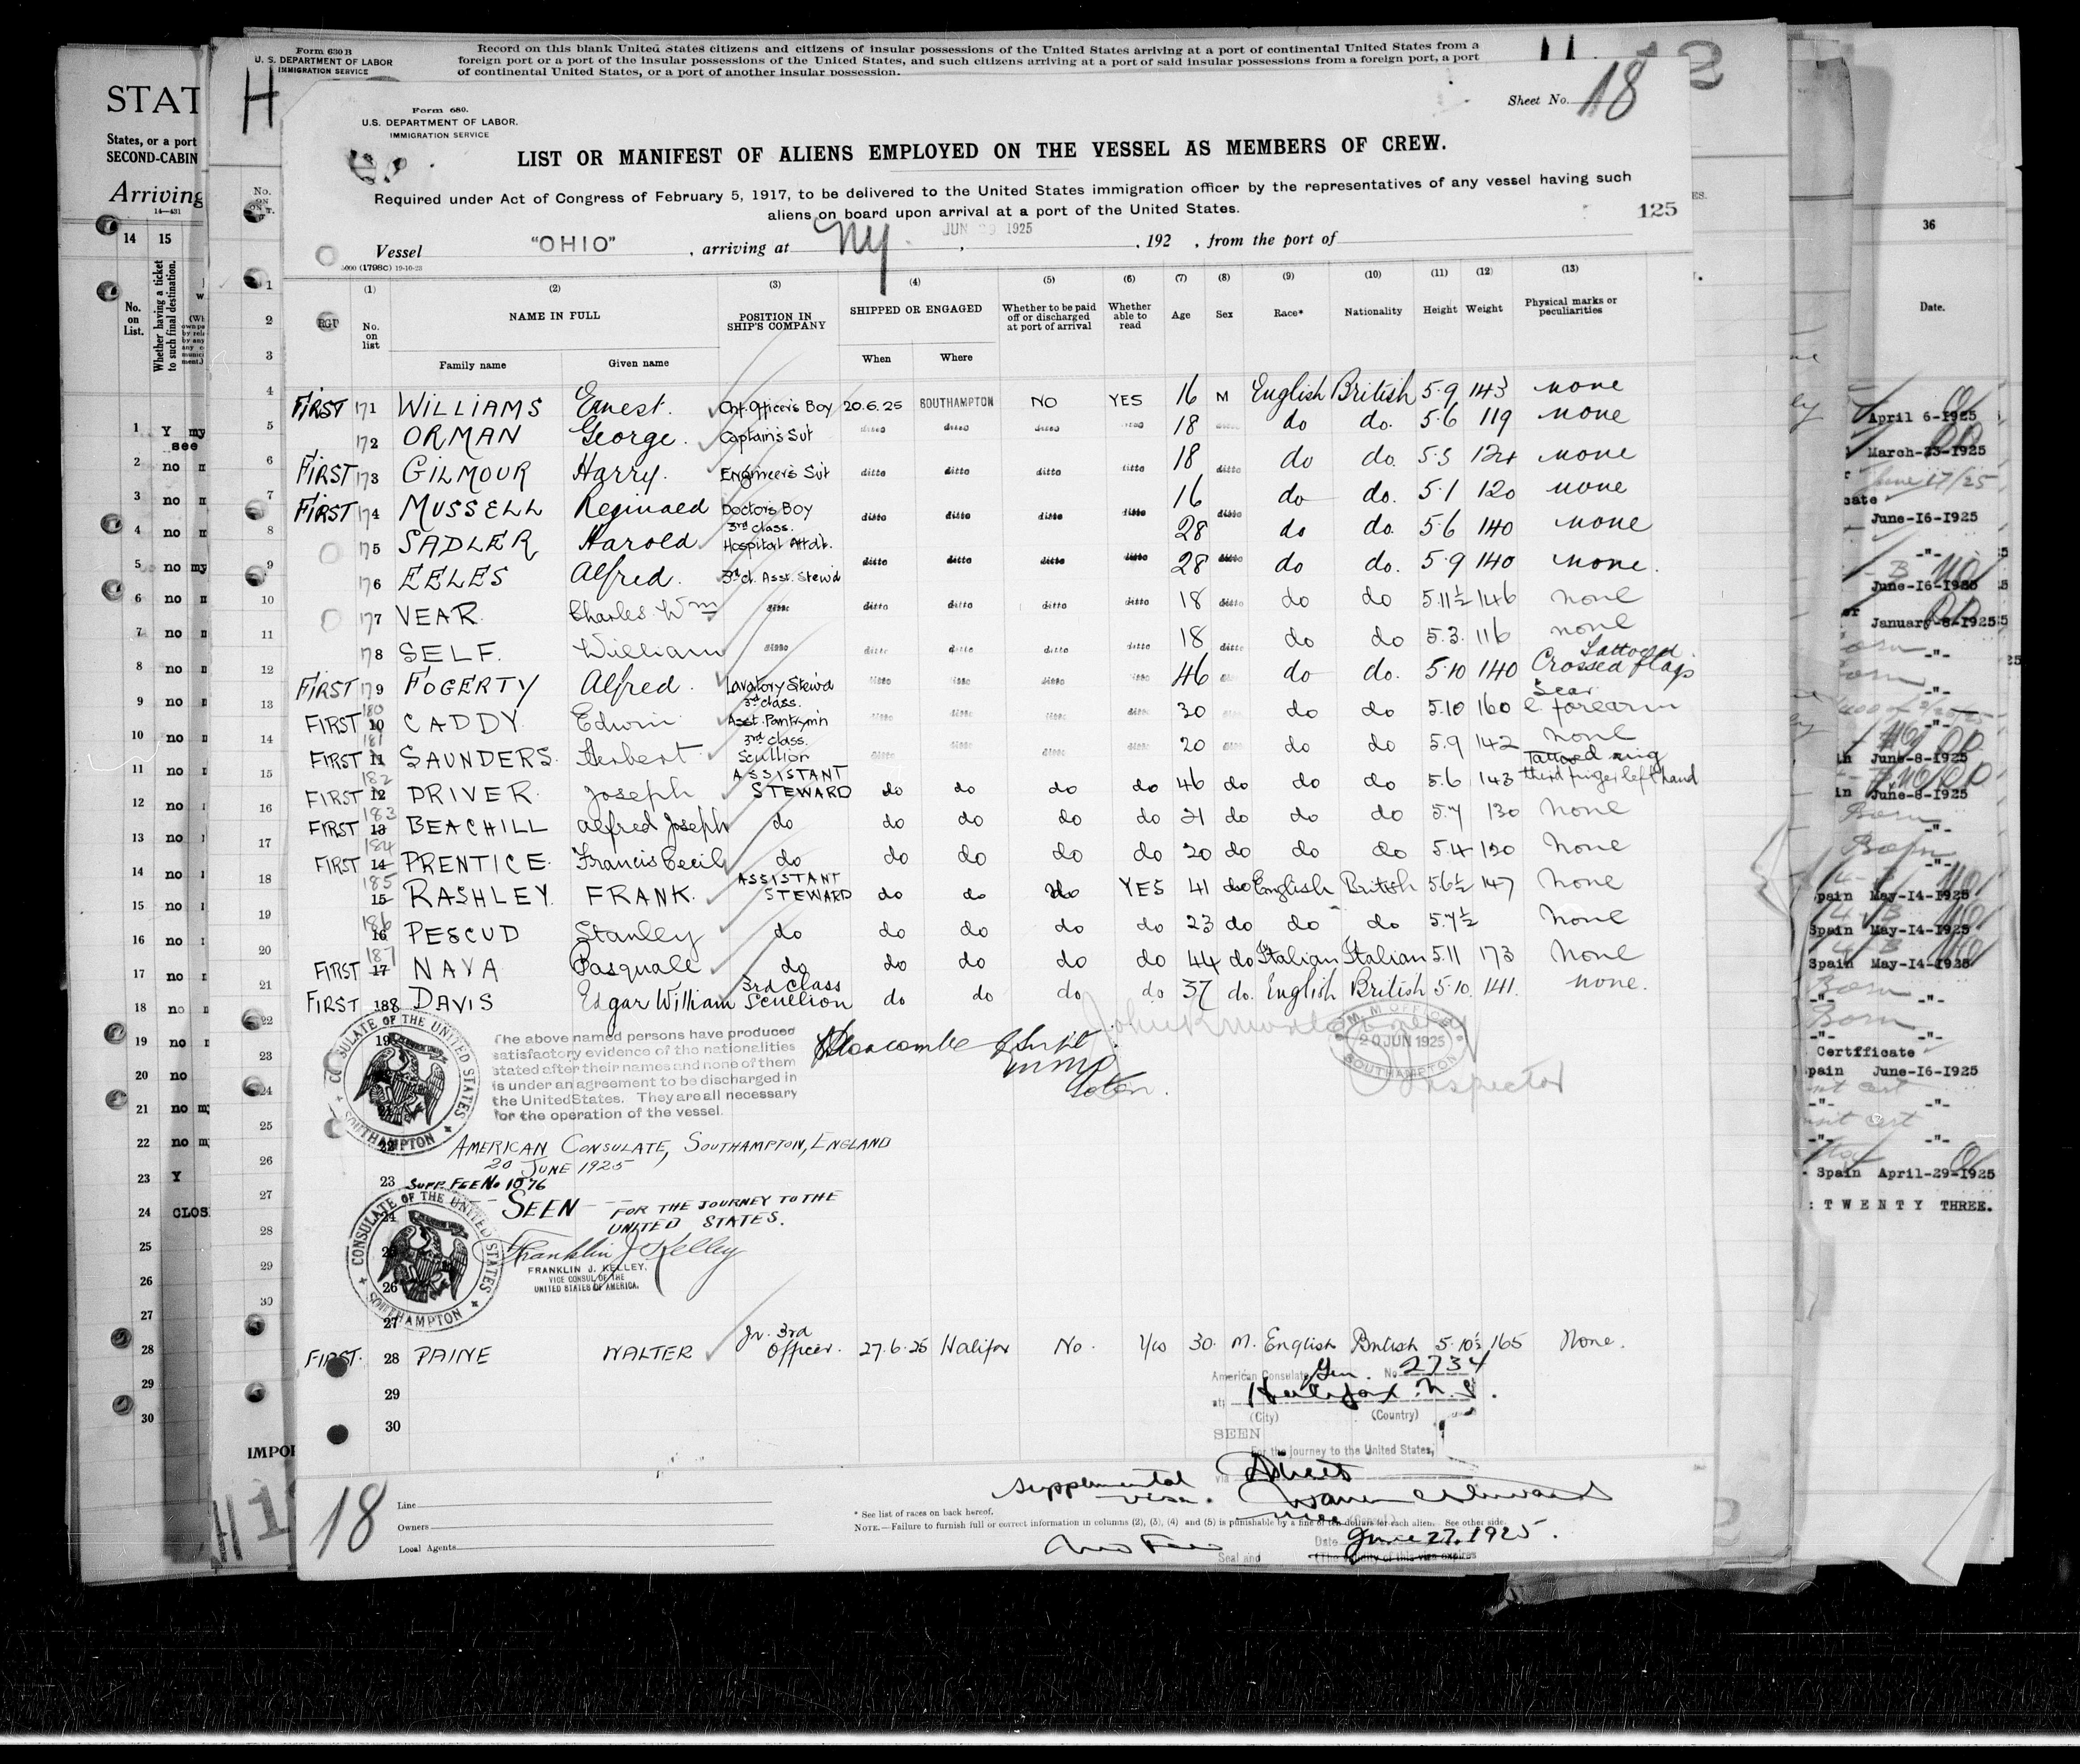 Form 630 B
U. S. DEPARTMENT OF LABOR
IMMIGRATION SERVICE
Record on this blank United States citizens and citizens of insular possessions of the United States arriving at a port of continental United States from a
foreign port or a port of the insular possessions of the United States, and such citizens arriving at a port of said insular possessions from a foreign port, a port
of continental United States, or a port of another insular possession.
H
STAT
States, or a port
SECOND-CABIN
Arriving
14—431
14 15
No. on List.
Whether having a ticket to such final destination.
Form 680.
U.S. DEPARTMENT OF LABOR.
IMMIGRATION SERVICE
Sheet No. 18
LIST OR MANIFEST OF ALIENS EMPLOYED ON THE VESSEL AS MEMBERS OF CREW.
Required under Act of Congress of February 5, 1917, to be delivered to the United States immigration officer by the representatives of any vessel having such
aliens on board upon arrival at a port of the United States.
125
Vessel "OHIO", arriving at Ny. JUN 29 1925, 192 , from the port of
5000 (1798C) 19-10-23
(1) (2) (3) (4) (5) (6) (7) (8) (9) (10) (11) (12) (13)
No. on list
NAME IN FULL
POSITION IN SHIP'S COMPANY
SHIPPED OR ENGAGED
Whether to be paid off or discharged at port of arrival
Whether able to read
Age Sex Race* Nationality Height Weight
Physical marks or peculiarities
Family name Given name When Where
FIRST 171 WILLIAMS Ernest. Cht. Officer's Boy 20.6.25 SOUTHAMPTON NO YES 16 M English British 5.9 143 none
172 ORMAN George. Captain's Svt ditto ditto ditto ditto 18 ditto do do. 5.6 119 none
FIRST 173 GILMOUR Harry. Engineer's Svt ditto ditto ditto ditto 18 ditto do do. 5.5 124 none
FIRST 174 MUSSELL Reginald Doctors Boy ditto ditto ditto ditto 16 ditto do do. 5.1 120 none
175 SADLER Harold 3rd Class. Hospital Attdt. 28 do do. 5.6 140 none
176 EELES Alfred. 3rd Cl. Asst. Stew'd ditto ditto ditto ditto 28 ditto do do. 5.9 140 none.
177 VEAR. Charles Wm ditto ditto ditto ditto ditto 18 ditto do do 5.11½ 146 none
178 SELF. William ditto ditto ditto ditto ditto 18 ditto do do 5.3. 116 none
FIRST 179 FOGERTY Alfred. Lavatory Stew'd 3rd class. ditto ditto ditto ditto 46 do do. 5.10 140 Tattooed Crossed flags
FIRST 180 10 CADDY. Edwin Asst. Pantrym'n 3rd Class. ditto ditto ditto ditto 30 do do 5.10 160 Scar l. forearm
FIRST 181 11 SAUNDERS. Herbert Scullion ditto ditto ditto ditto 20 do do 5.9 142 None
FIRST 182 12 DRIVER. Joseph ASSISTANT STEWARD do do do do 46 do do do 5.6 143 Tattooed ring third finger left hand
FIRST 183 13 BEACHILL Alfred Joseph do do do do do 21 do do do 5.7 130 None
FIRST 184 14 PRENTICE. Francis Cecil do do do do do 20 do do do 5.4 120 None
185 15 RASHLEY. FRANK. ASSISTANT STEWARD do do do YES 41 do English British 5.6½ 147 None
186 16 PESCUD Stanley do do do do do 23 do do do 5.7½ None
FIRST 187 17 NAVA Pasquale do do do do do 44 do Italian Italian 5.11 173 None
FIRST 188 DAVIS Edgar William 3rd Class Scullion do do do do 37 do. English British 5.10. 141. none.
19
CONSULATE OF THE UNITED STATES
SOUTHAMPTON
The above named persons have produced
satisfactory evidence of the nationalities
stated after their names and none of them
is under an agreement to be discharged in
the United States. They are all necessary
for the operation of the vessel.
M.M. OFFICE
20 JUN 1925
SOUTHAMPTON
Inspector
AMERICAN CONSULATE, SOUTHAMPTON, ENGLAND
20 JUNE 1925
23 SUPP. FEE No 1076
SEEN — FOR THE JOURNEY TO THE
UNITED STATES.
CONSULATE OF THE UNITED STATES
SOUTHAMPTON
Franklin J. Kelley
FRANKLIN J. KELLEY.
VICE CONSUL OF THE
UNITED STATES OF AMERICA.
26
27
FIRST. 28 PAINE WALTER Jr. 3rd Officer. 27.6.25 Halifax No. Yes 30. M. English British 5.10½ 165 None.
29
30
American Consulate Gen. No 2734
at Halifax N.S.
(City) (Country)
SEEN
For the journey to the United States,
via Direct
Supplemental
visa.
No Fee
Date June 27. 1925.
Seal and
(The validity of this visa expires
18
Line
Owners
Local Agents
* See list of races on back hereof.
NOTE.—Failure to furnish full or correct information in columns (2), (3), (4) and (5) is punishable by a fine of ten dollars for each alien. See other side.
36
Date.
April 6-1925
March-23-1925
June 17/25
June-16-1925
-"-
June-16-1925
January-8-1925
-"-
-"-
-"-
June-8-1925
June-8-1925
Born -"-
Born -"-
Spain May-14-1925
Spain May-14-1925
Spain May-14-1925
Born -"-
Born -"-
Certificate
Spain June-16-1925
-"-
-"-
Spain April-29-1925
: TWENTY THREE.